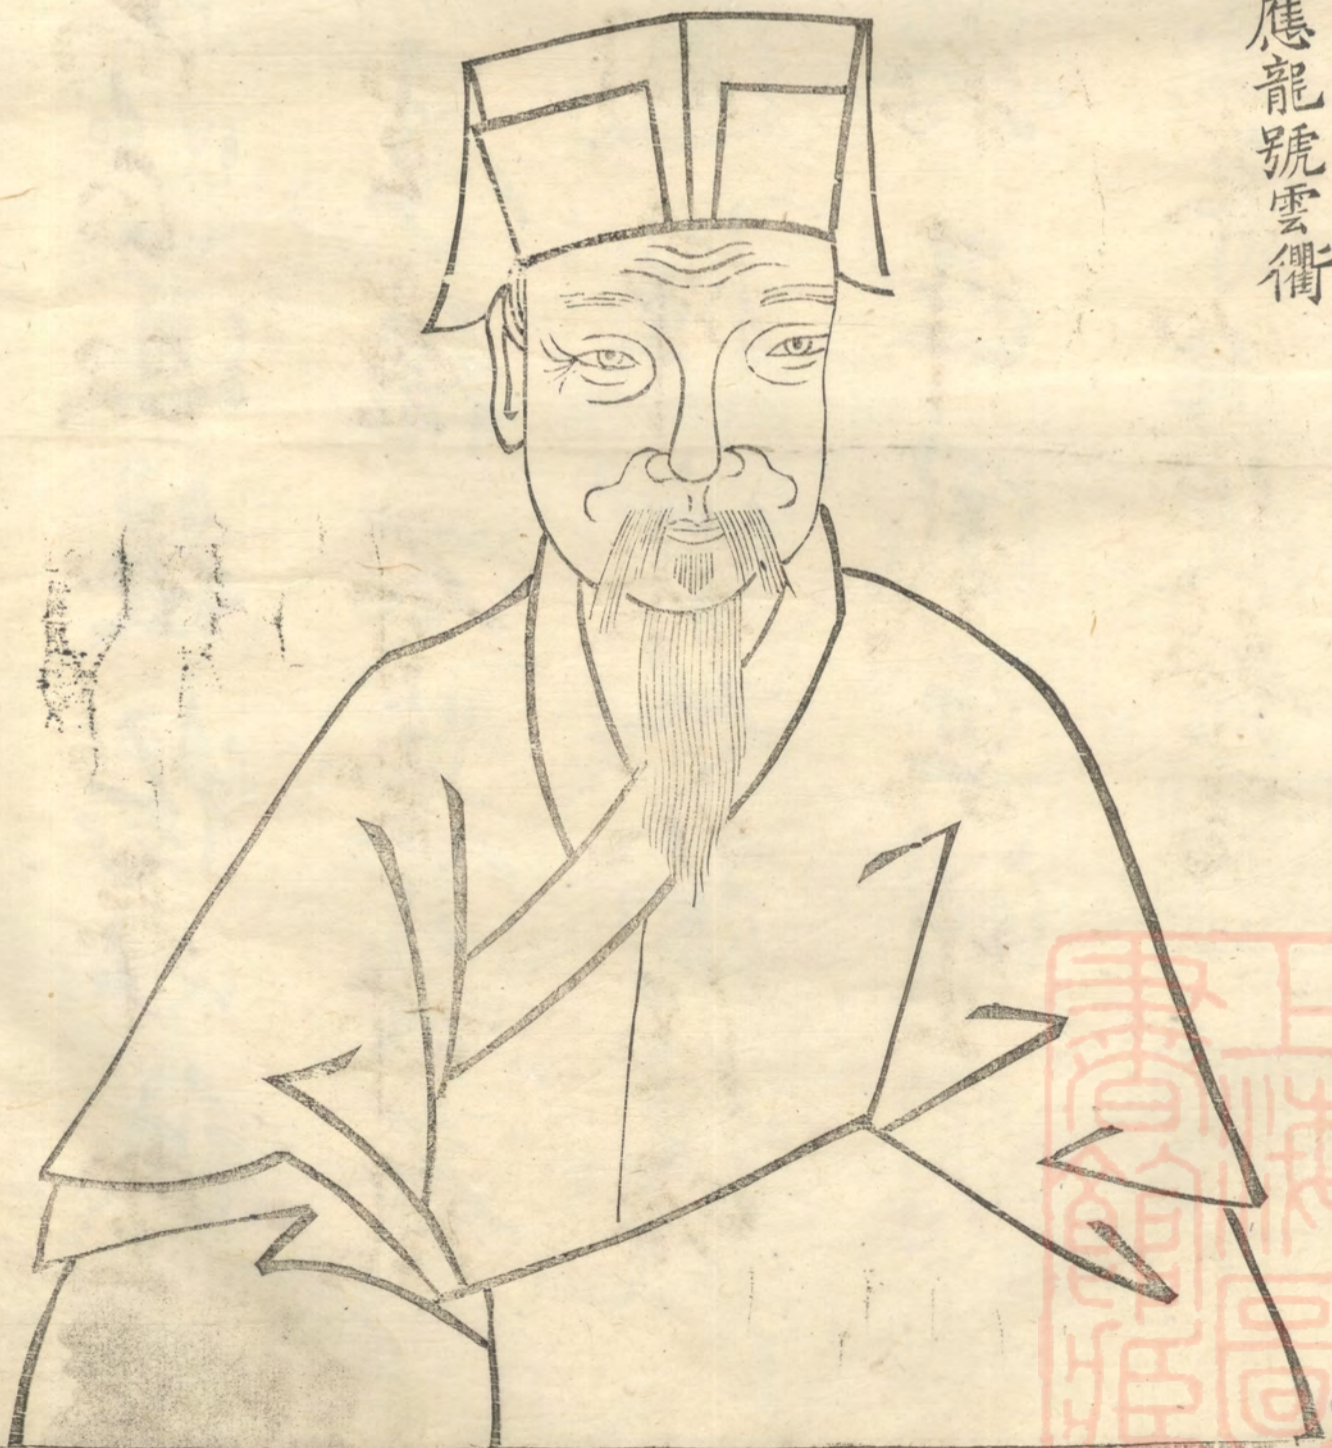 應龍號雲衢
上海圖書館藏